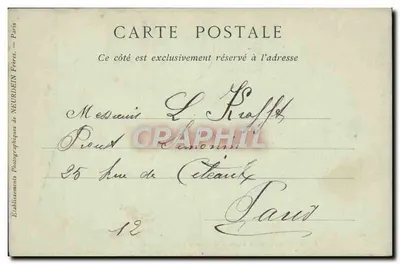 CARTE POSTALE
Ce côté est exclusivement réservé à l'adresse
Messieurs L Krafft
25 Rue de Citeaux
Paris
12
Etablissements Photographiques de NEURDEIN Frères. — Paris
CPAPHIL